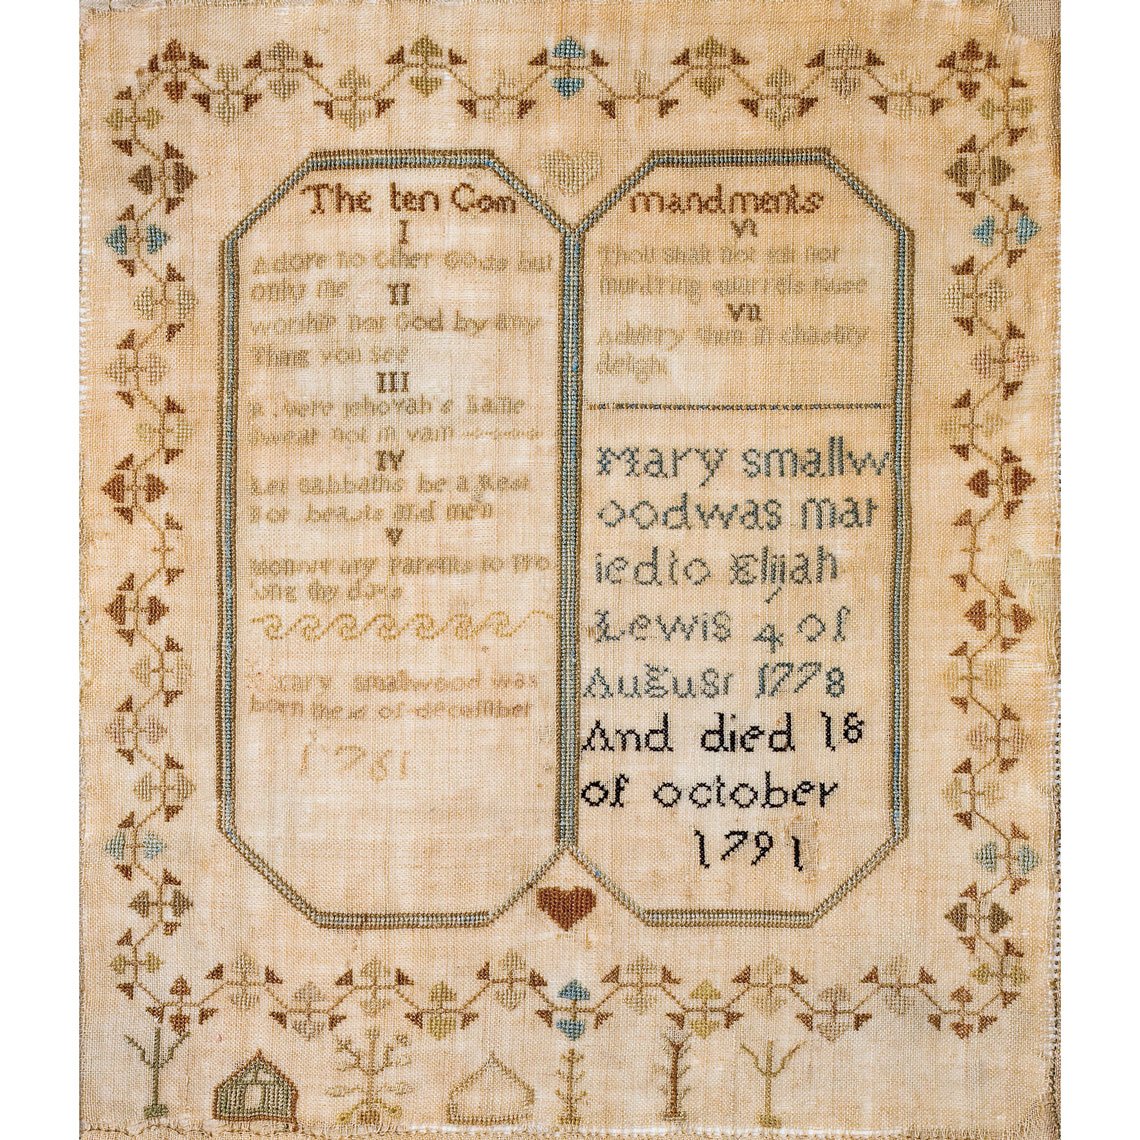 The ten Com
I
Adore no other Gods but
only me
II
worship not God by any
Thing you see
III
Jehovah's Name
swear not in vain
IV
Let Sabbaths be a Rest
For beasts and men
V
Honour my Parents to Pro
long thy days
mary smallwood was
born the of december
1761
mandments
VI
Thou shalt not nor
murdring quarrels raise
VII
Adultry shun in chastity
delight
Mary smallw
ood was mar
ied to Elijah
Lewis 4 of
August 1778
And died 18
of october
1791